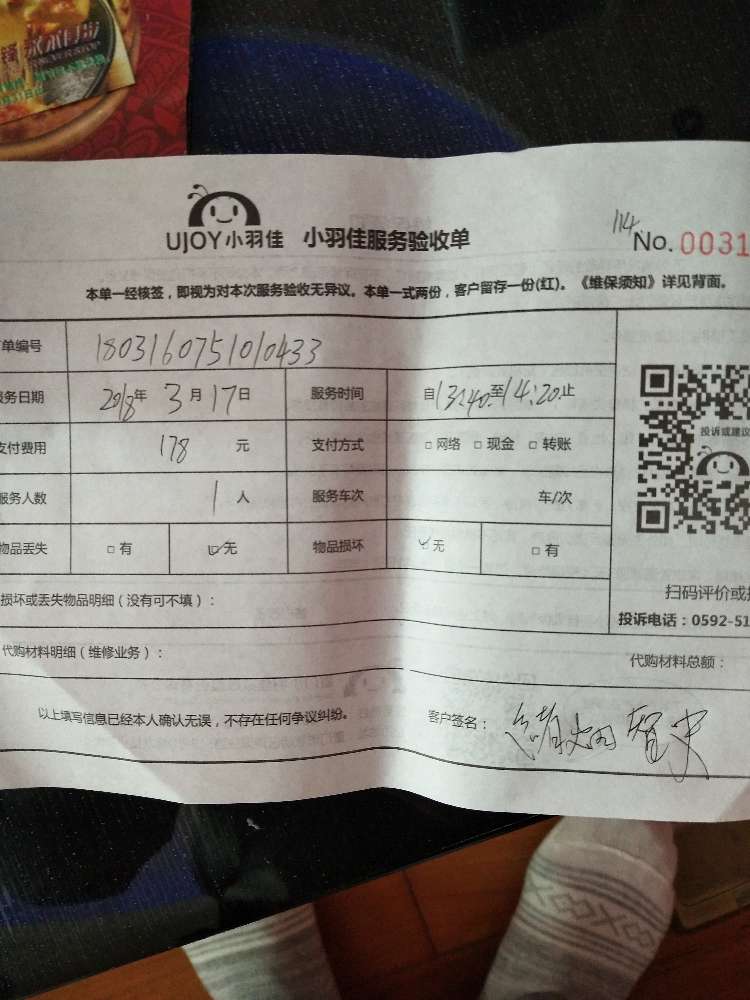 UJOY小羽佳 小羽佳服务验收单
114
No. 0031
本单一经核签，即视为对本次服务验收无异议。本单一式两份，客户留存一份(红)。《维保须知》详见背面。
单编号 1803160751010433
服务日期 2018年 3月17日 服务时间 自13:40至14:20止
支付费用 178 元 支付方式 □ 网络 □ 现金 □ 转账
投诉或建议
服务人数 1人 服务车次 车/次
物品丢失 □ 有 ☑无 物品损坏 ☑无 □ 有
扫码评价或
损坏或丢失物品明细（没有可不填）：
投诉电话：0592-51
代购材料明细（维修业务）：
代购材料总额：
以上填写信息已经本人确认无误，不存在任何争议纠纷。 客户签名：